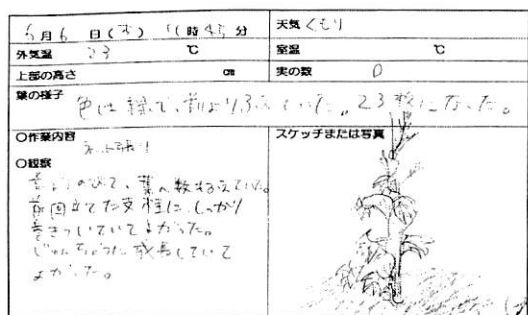 6月6日(木) 11時45分 天気 くもり
外気温 23 ℃ 室温 ℃
上部の高さ cm 実の数 0
葉の様子 色は緑で、前よりふえていた。23枚になった。
○作業内容 スケッチまたは写真
ネット張り
○観察
のびて、葉の数もふえていた。
前回立てた支柱に、しっかり
巻きついていてよかった。
じゅんちょうに成長していて
よかった。